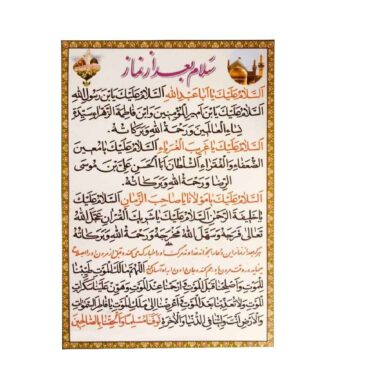 سلام بعد از نماز
اَلسَّلامُ عَلَيْكَ يا اَبا عَبْدِ اللهِ اَلسَّلامُ عَلَيْكَ يَا بْنَ رَسُولِ اللهِ
اَلسَّلامُ عَلَيْكَ يَا بْنَ اَميرِ الْمُؤْمِنينَ وَابْنَ فاطِمَةَ الزَّهْراءِ سَيِّدَةِ
نِساءِ الْعالَمينَ وَرَحْمَةُ اللهِ وَبَرَكاتُهُ.
اَلسَّلامُ عَلَيْكَ يا غَريبَ الْغُرَباءِ اَلسَّلامُ عَلَيْكَ يا مُعينَ
الضُّعَفاءِ وَالْفُقَراءِ اَلسُّلْطانَ يا اَبَا الْحَسَنِ عَلِيَّ بْنَ مُوسَى
الرِّضا وَرَحْمَةُ اللهِ وَبَرَكاتُهُ.
اَلسَّلامُ عَلَيْكَ يا مَوْلانا يا صاحِبَ الزَّمانِ اَلسَّلامُ عَلَيْكَ
يا خَليفَةَ الرَّحْمٰنِ اَلسَّلامُ عَلَيْكَ يا شَريكَ الْقُرْآنِ عَجَّلَ اللهُ
تَعالى فَرَجَهُ وَسَهَّلَ اللهُ مَخْرَجَهُ وَرَحْمَةُ اللهِ وَبَرَكاتُهُ
هر که بعد از نماز این دعا را بخواند
اَللّهُمَّ
لِلْمَوْتِ وَ الْمَوْتِ وَهَوِّنْ عَلَيْنا سَكَراتِ
الْمَوْتِ وَلا تُعَذِّبْنا بَعْدَ الْمَوْتِ
وَالْاَرْضِ فِي الدُّنْيا وَالْآخِرَةِ تَوَفَّنا مُسْلِماً وَاَلْحِقْنا بِالصّالِحينَ